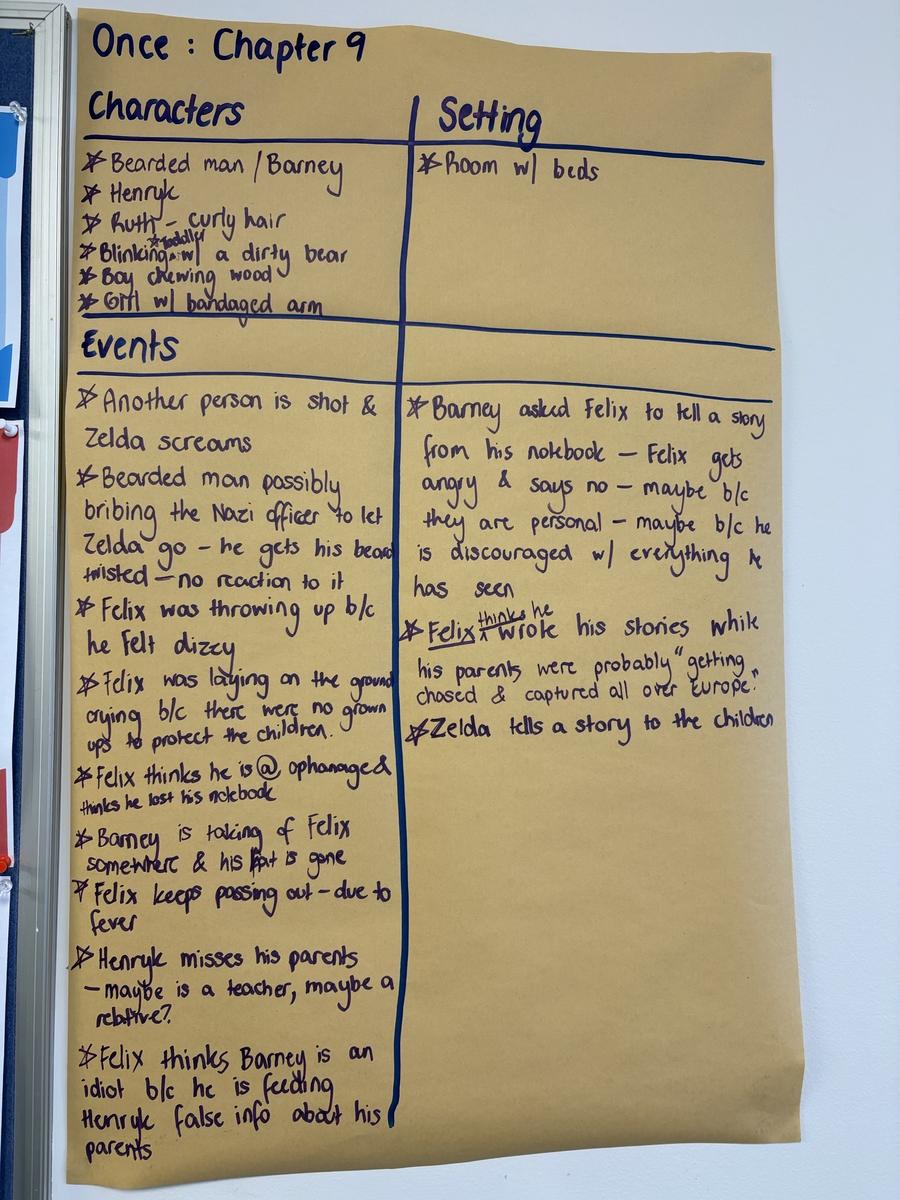 Once : Chapter 9
Characters
* Bearded man / Barney
* Henryk
* Ruth - curly hair
* Blinking * toddler w/ a dirty bear
* Boy chewing wood
* Girl w/ bandaged arm
Setting
* Room w/ beds
Events
* Another person is shot &
Zelda screams
* Bearded man possibly
bribing the Nazi officer to let
Zelda go - he gets his beard
twisted - no reaction to it
* Felix was throwing up b/c
he felt dizzy
* Felix was laying on the ground
crying b/c there were no grown
ups to protect the children.
* Felix thinks he is @ ophanage &
thinks he lost his notebook
* Barney is taking of Felix
somewhere & his hat is gone
* Felix keeps passing out - due to
fever
* Henryk misses his parents
- maybe is a teacher, maybe a
relative?
* Felix thinks Barney is an
idiot b/c he is feeding
Henryk false info about his
parents
* Barney asked Felix to tell a story
from his notebook - Felix gets
angry & says no - maybe b/c
they are personal - maybe b/c he
is discouraged w/ everything he
has seen
* Felix thinks he wrote his stories while
his parents were probably "getting
chased & captured all over Europe."
* Zelda tells a story to the children